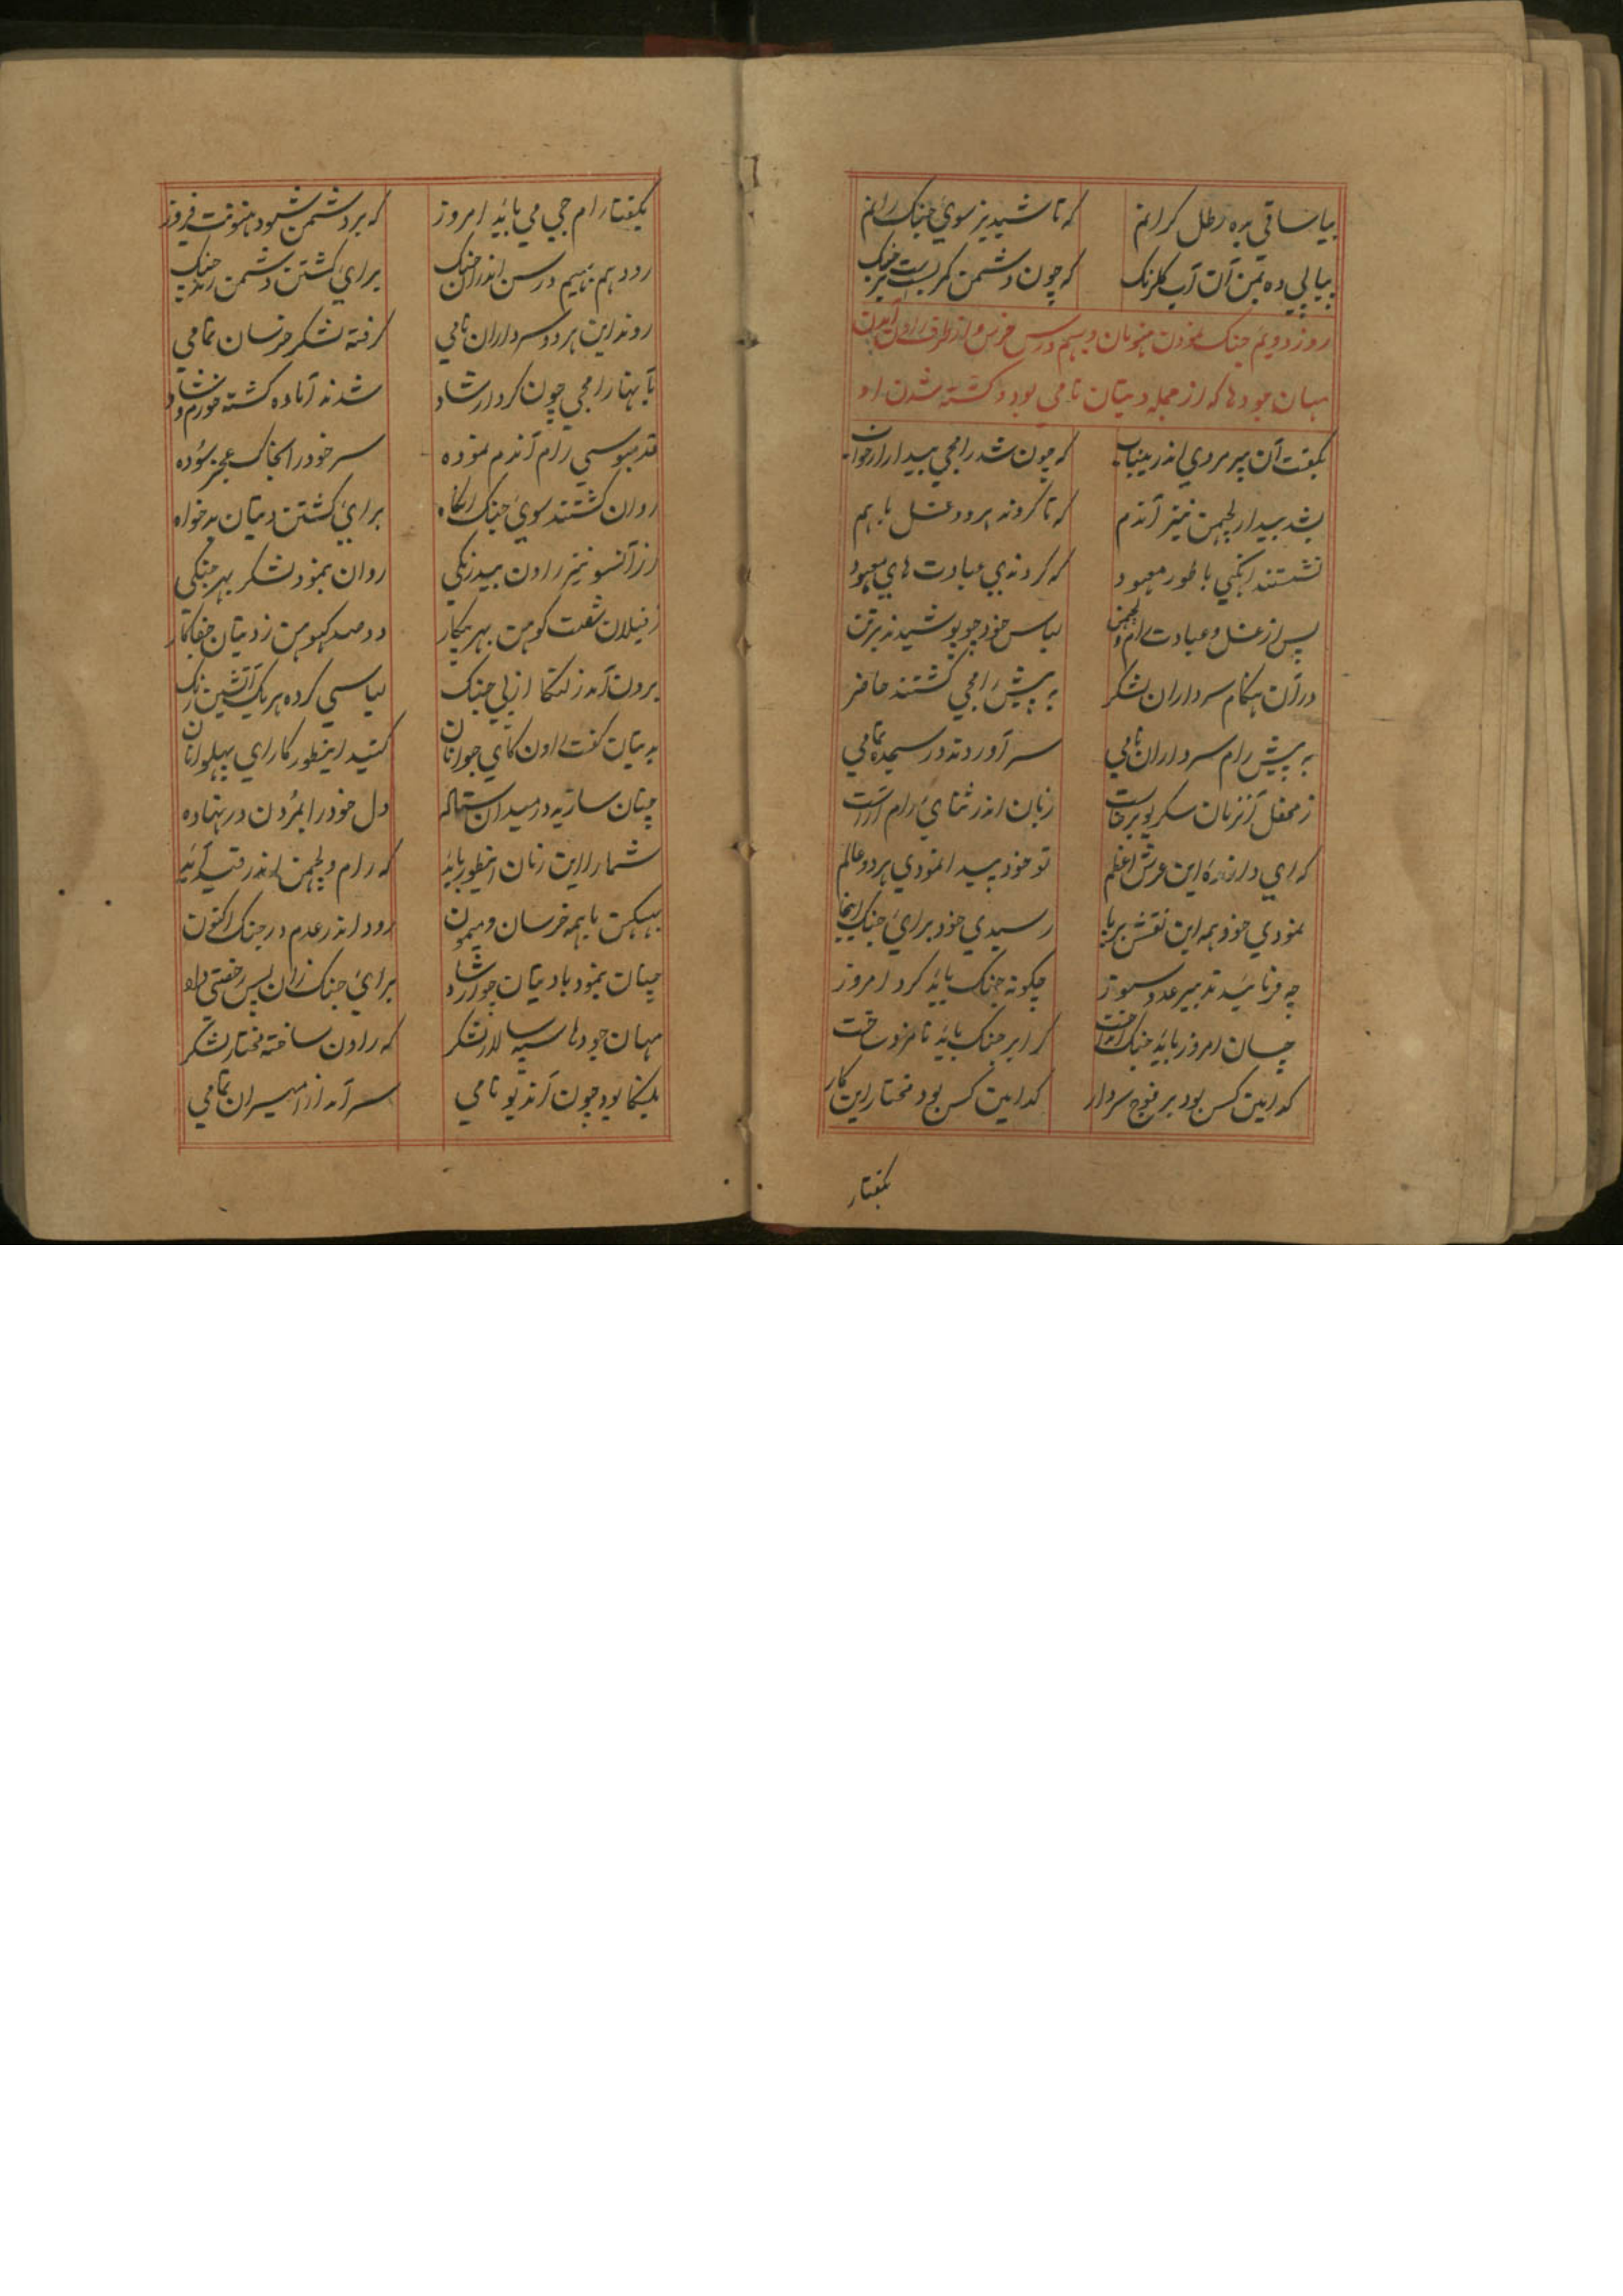 بیا ساقی بده رطل کرانم که تا شبدیز سوی جنک رانم
پیاپی ده بمن آن آب کلرنک که چون دشمن کمر بست از پی جنک
روز دویم جنک نمودن هنومان و بهیم درسن خرس و از طرف راون آمدن
مهان جودها که از جمله دیتان نامی بود و کشته شدن او
بکفت آن پیر مردی اندرینباب که چون شد رامجی بیدار از خواب
بشد بیدار لچهمن نیز آندم که تا کردند هر دو غسل باهم
نشستند انکهی با طور معهود که کردندی عبادت های معبود
پس از غسل و عبادت رام و لچهمن لباس خود چو پوشیدند بر تن
در آن هنکام سرداران لشکر به پیش رامجی کشتند حاضر
به پیش رام سرداران نامی سر آوردند در سجده تمامی
ز محفل آنزمان سکریو برخاست زبان اندر ثنای رام آراست
که ای دارندهٔ این عرش اعظم تو خود پیدا نمودی هر دو عالم
نمودی خود همه این نقش برپا رسیدی خود برای جنک اینجا
چه فرمائید تدبیر عدو سوز چکونه جنک باید کرد امروز
چسان امروز باید جنک انداخت کرا بر جنک باید نامزد ساخت
کدامین کس بود بر فوج سردار کدامین کس بود مختار این کار
بکفتار
بکفتا رام جی می باید امروز که بر دشمن شود هنونت فیروز
رود هم بهیم درسن اندر آن جنک برای کشتن دشمن
روند این هر دو سرداران نامی کرفته لشکر خرسان تمامی
بآنها رامجی چون کرد ارشاد شدند آماده کشته خورم و شاد
قدمبوسی رام آندم نموده سر خود را بخاک عجز سوده
روان کشتند سوی جنک آنکاه برای کشتن دیتان بدخواه
از آنسو نیز راون بیدرنکی روان بنمود لشکر بهر جنکی
ز فیلان شصت کوهن بهر پیکار دو صد کهوهن ز دیتان جفاکار
برون آمد ز لنکا از پی جنک لباسی کرده هر یک آتشین رنک
به دیتان کفت راون کای جوانان کنید اینطور کار ای پهلوانان
چنان سازید در میدان ستاده دل خود را بمردن در نهاده
شما را این زمان اینطور باید که رام و لچهمن اندر قید آید
بهبیکهن با همه خرسان و میمون رود اندر عدم در جنک اکنون
چنان بنمود با دیتان چو ارشاد برای جنک زان پس رخصتی داد
مهان جودها سپه سالار لشکر که راون ساخته مختار لشکر
بلنکا بود چون آندیو نامی سر آمد از امیران تمامی